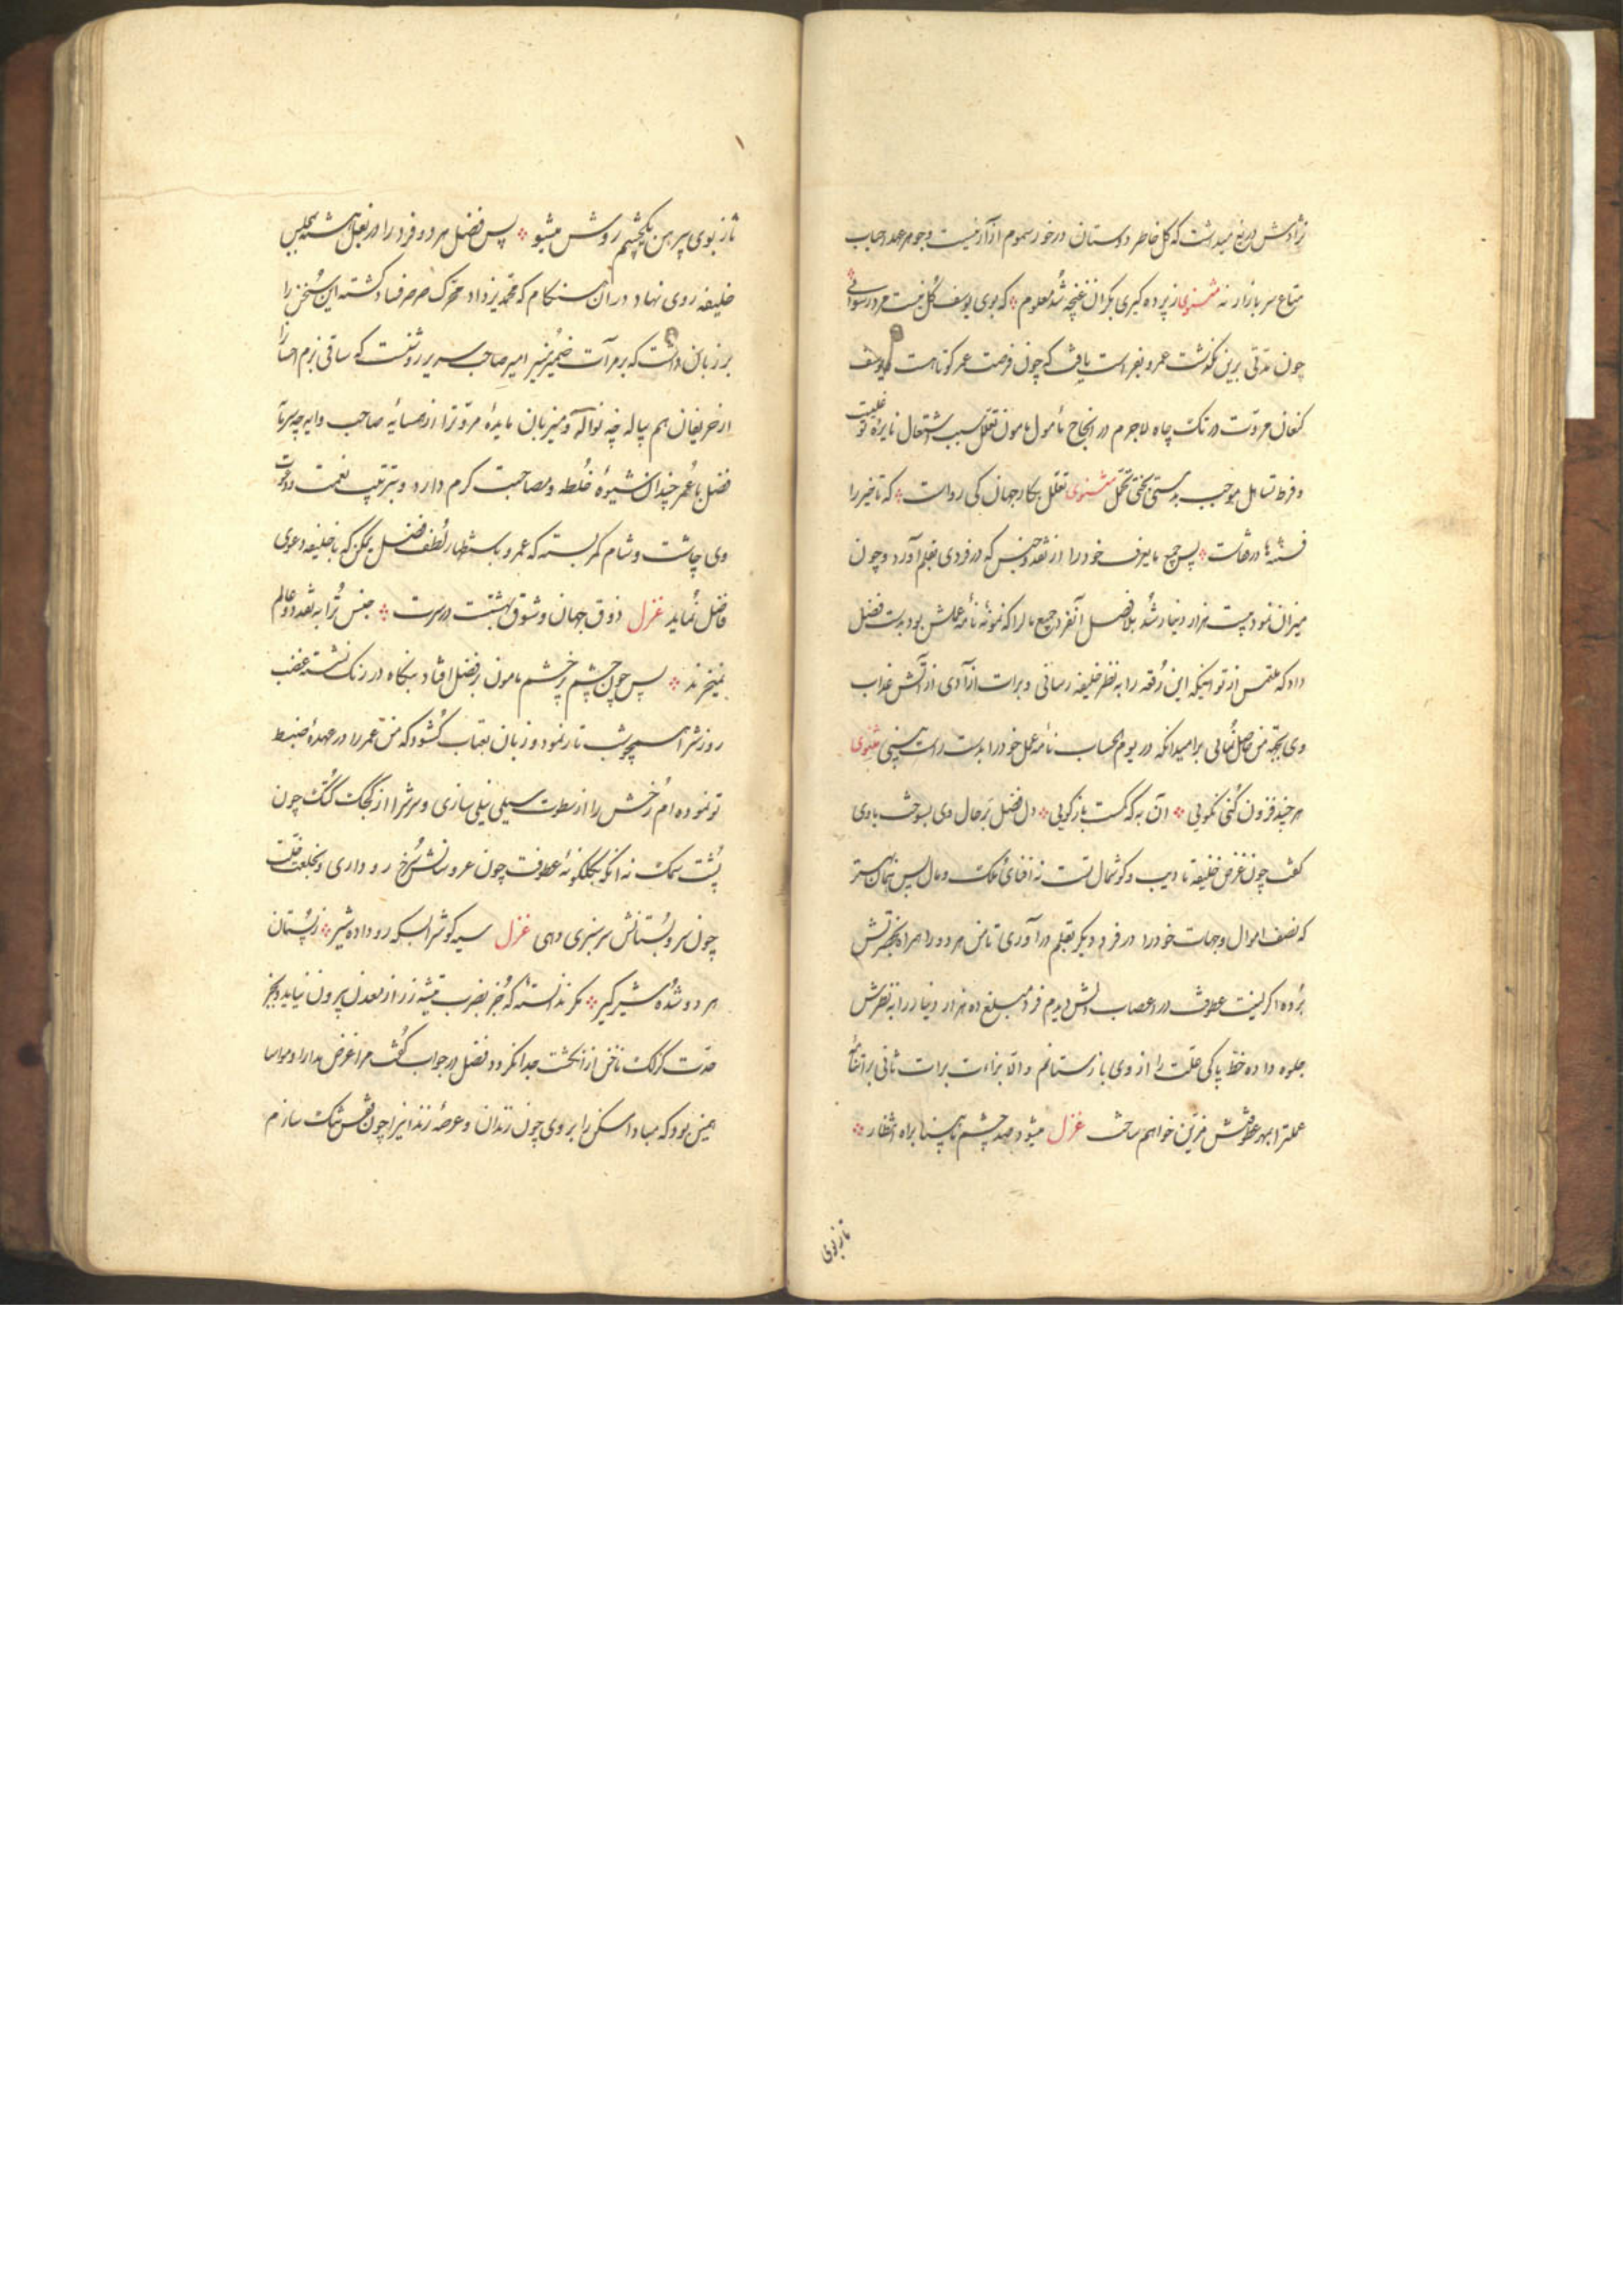 نژادش دریغ میداشت که گل خاطر دوستان درخور سموم آزار نیست و جوهر عهد احباب
متاع سر بازار نه مثنوی ز پرده گیری بکر آن غنچه شد معلوم که بوی یوسف گل نیست مرد رسوائی
چون مدتی برین بگذشت عمرو بفراست یافت که چون فرصت عمر کوتاهست و یوسف
کنعان مروت در تک چاه لاجرم در انجاح مأمول مامون تعلل سبب اشتعال نایره غضبیت
و فرط تساهل موجب بدستی تحمل مثنوی تعلل بکار جهان کی رواست که تاخیر را
فتنه‌ها در قفاست پس جمیع مایعرف خود را از نقد و جنس که در فردی بقلم آورد و چون
میزان نمود بیست هزار دینار شد بلافصل آنفرد جمیع مال را که نمونه نامه عملش بود بدست فضل
داد که ملتمس از تو اینکه این رقعه را به نظر خلیفه رسانی و برات آزادی از آتش عذاب
وی بجهته من حاصل نمائی بر امید آنکه در یوم الحساب نامه عمل خود را بدست راست بینی مثنوی
هر چند فزون کنی نکویی آن به که کمست بازگویی دل فضل بر حال وی بسوخت با وی
گفت چون غرض خلیفه تادیب و گوشمال تست نه افنای ملک و مال پس همان بهتر
که نصف اموال و جهات خود را در فرد دیگر بقلم درآوری تا من هر دو را همراه بحضرتش
برده اگر لینت عطوفت در اعصاب دلش دیدم فرد مبلغ ده هزار دینار را به نظرش
جلوه داده خط پاکی علت را از وی بازستانم والا براءت برات ثانی بر
عملت را بمهر عطوفتش مزین خواهم ساخت غزل میشود صد چشم نابینا براه انتظار
تا ز بوی
تا ز بوی پیرهن یکچشم روشن میشود پس فضل هر دو فرد را در بغل هشته بمجلس
خلیفه روی نهاد در آن هنگام که محمد یزداد محرک صرصر فساد گشته این سخن را
بر زبان داشت که بر مرآت ضمیر منیر امیر صاحب سریر روشنست که ساقی بزم احسان را
از حریفان هم پیاله چه نواله و میزبان مایده مروت را از همسایه صاحب دایره چه سرمایه
فضل با عمر چندان شیوه خلطه و مصاحبت کرم دارد و بترتیب نعمت دعوت
وی چاشت و شام کمر بسته که عمرو باستظهار لطف فضل یمکن که با خلیفه دعوی
فضل نماید غزل ذوق جهان و شوق بهشتت در سرت جنس ترا به نقد دو عالم
نمیخرند پس چون چشم پر خشم مامون بر فضل افتاد بنگاه در رنگ نشسته غضب
روزش را همچو شب تار نمود و زبان بعتاب گشود که من عمر را در عهده ضبط
تو نموده‌ام رخش را از سطوت سیلی نیلی سازی و سرش را از کجک کتک چون
پشت سمک نه آنکه بگلگونه عطوفت چون عروسانش سرخ رو داری و بخلعت خلت
چون سرو بستانش سرسبزی دهی غزل سیه گوش را بسکه رو داده شیر ز پستان
هر دو شده شیرگیر مگر ندانسته که جز بضرب تیشه زر از معدن بیرون نیاید و بجز
حدت گزلک ناخن از انگشت جدا نگردد فضل در جواب گفت مرا غرض مدارا و مواسا
همین بود که مبادا مسکن را بر وی چون زندان و عرصه زندان را چون قفس تنگ سازم